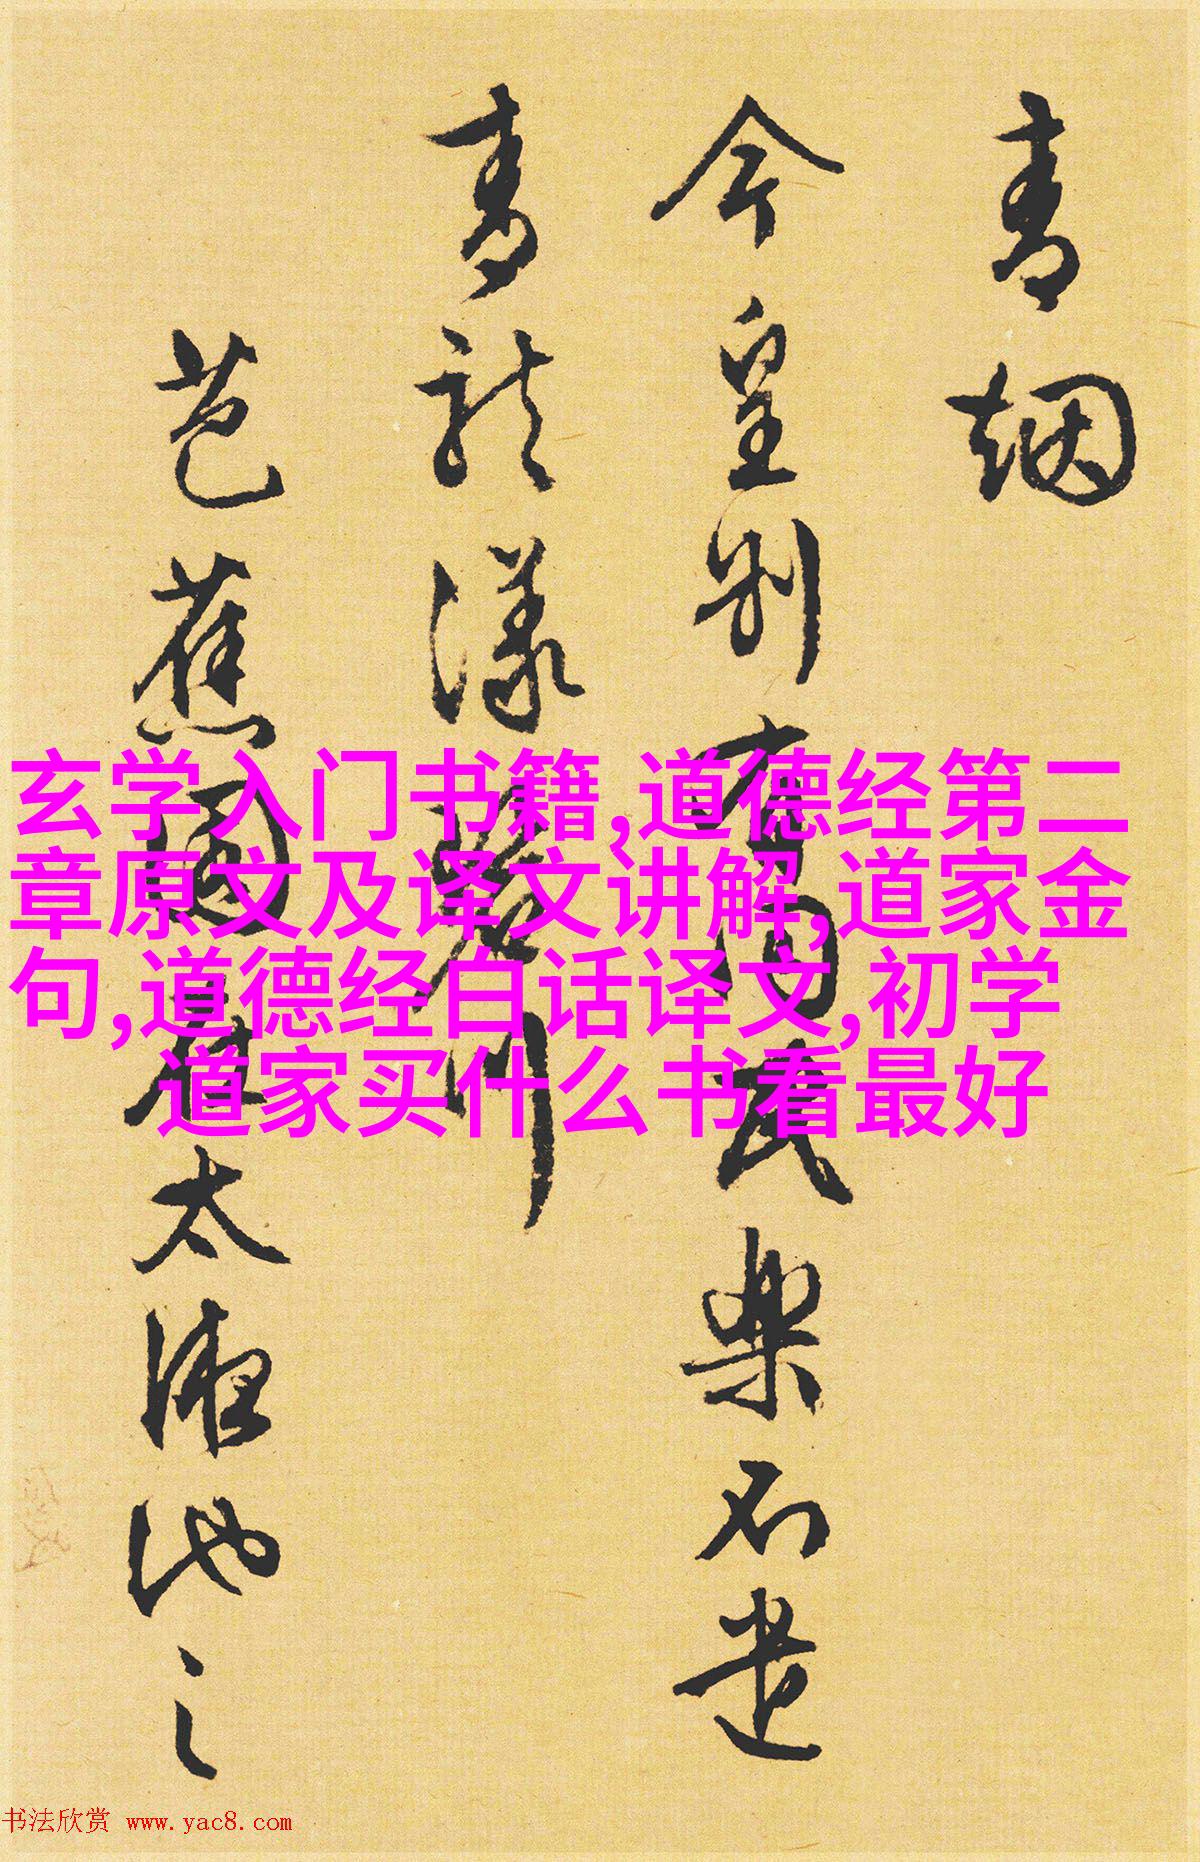 青烟
今皇别有
民樂石遗
青龍漾碧川
芭蕉園在太液池之
玄学入门书籍,道德经第二
章原文及译文讲解,道家金
句,道德经白话译文,初学
道家买什么书看最好
书法欣赏 www.yac8.com